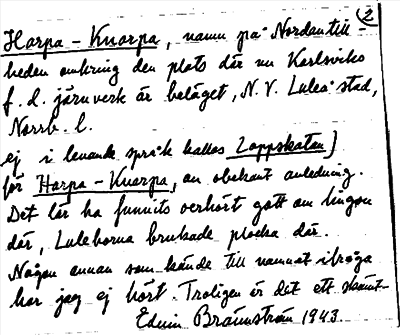 2
Harpa-Knarpa, namn på Nordantill-
heden omkring den plats där nu Karlsviks
f.d. järnverk är beläget, N.V. Luleå stad,
Norrb. l.
ej i levande språk kallas Lappskatan)
för Harpa-Knarpa, an obekant anledning.
Det lär ha funnits oerhört gott om lingon
där, Luleborna brukade plocka där.
Någon annan som kände till namnet ifråga
har jag ej hört. Troligen är det ett skämt-
Edvin Brännström 1943.